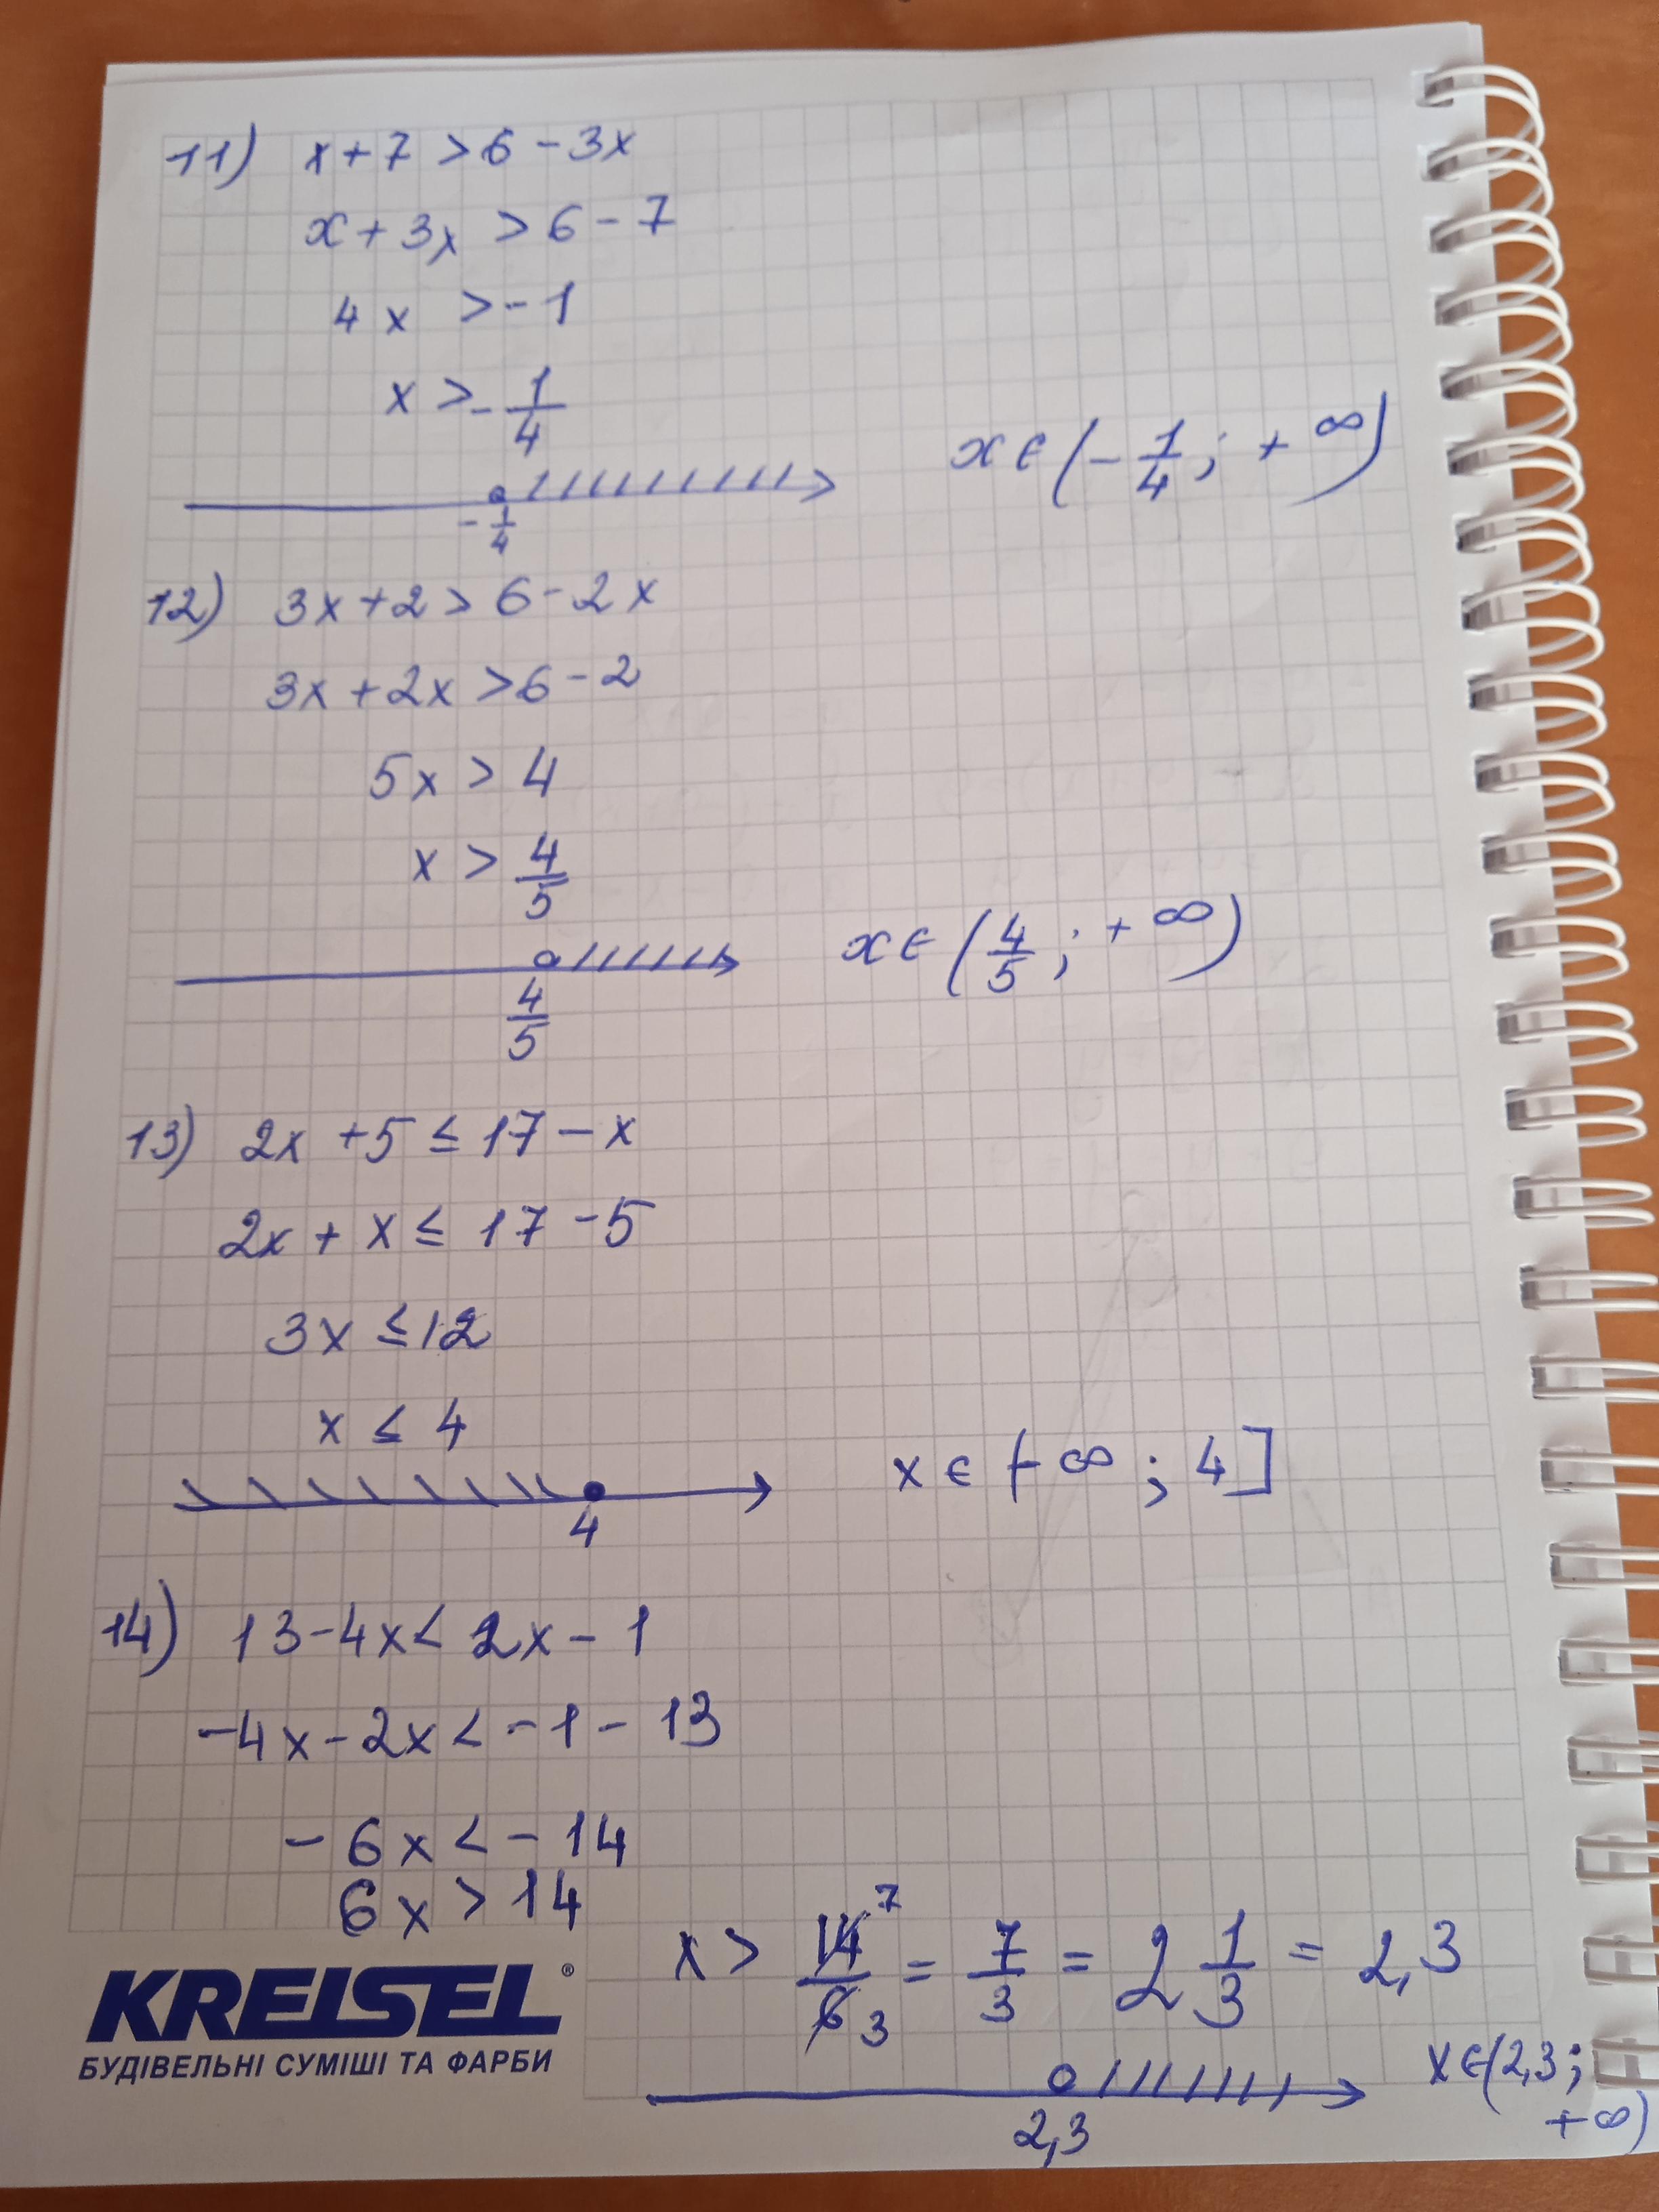 11) x + 7 > 6 - 3x
x + 3x > 6 - 7
4x > - 1
x > - 1/4
- 1/4
x ∈ (- 1/4; + ∞)
12) 3x + 2 > 6 - 2x
3x + 2x > 6 - 2
5x > 4
x > 4/5
4/5
x ∈ (4/5; + ∞)
13) 2x + 5 ≤ 17 - x
2x + x ≤ 17 - 5
3x ≤ 12
x ≤ 4
4
x ∈ (- ∞; 4]
14) 13 - 4x < 2x - 1
-4x - 2x < - 1 - 13
- 6x < - 14
6x > 14
x > 14/6 7 3 = 7/3 = 2 1/3 = 2,3
2,3
x ∈ (2,3;
+ ∞)
KREISEL®
БУДІВЕЛЬНІ СУМІШІ ТА ФАРБИ